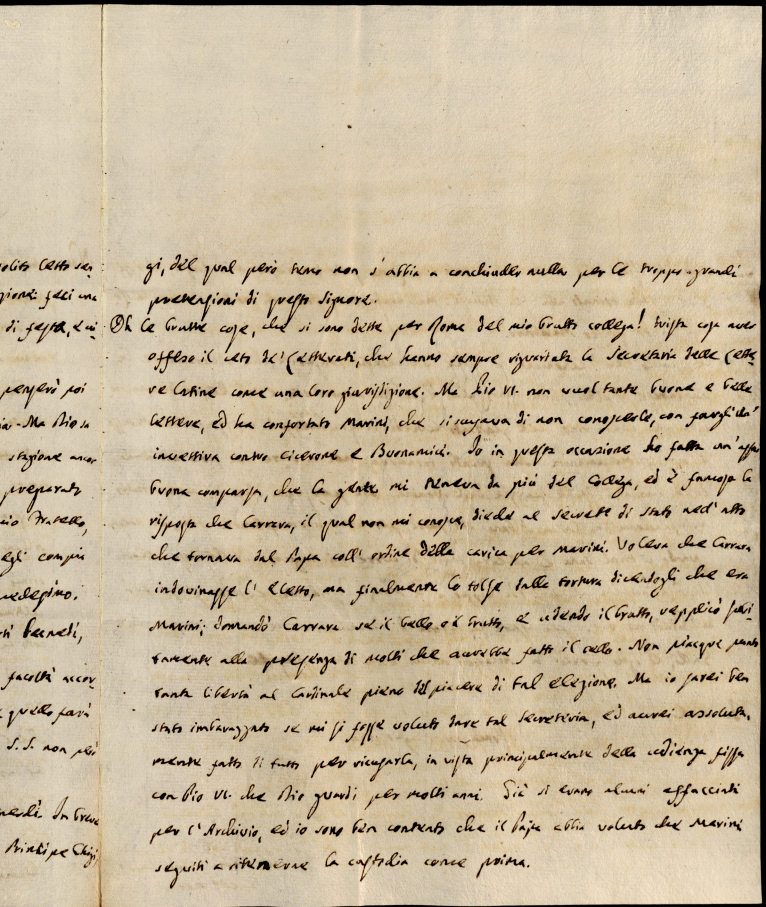 olito Cetto sen
zioni feci una
di festa, e mi
pensarò poi
Ma Dio sa
stagione ancor
preparati
mio Fratello,
egli compia
medesimo.
facoltà accor-
quello farà
S. S. non può
In breve
Principe Chigi
gi, del qual però temo non s'abbia a conchiuder nulla per le troppo grandi
pretensioni di questo Signore.
Oh le brutte cose, che si sono dette per Roma del mio brutto collega! trista cosa aver
offeso il ceto de' Letterati, che hanno sempre riguardata la Secretaria delle Lette-
re Latine come una loro giurisdizione. Ma Pio VI. non vuol tante buone e belle
lettere, ed ha confortato Marini, che si scusava di non conoscerle, con fargli un'
invettiva contro Cicerone e Buonamici. Io in questa occasione ho fatta un'assai
buona comparsa, che la gente mi teneva da più del Collega, ed è famosa la
risposta che Carrara, il qual non mi conosce, diede al Secrett. di Stato nell'atto
che tornava dal Papa coll'ordine della carica per Marini. Voleva che Carrara
indovinasse l'eletto, ma finalmente lo tolse dalla tortura dicendogli che era
Marini; domandò Carrara se il bello o il brutto, e udendo il brutto, replicò pari-
tamente alla presenza di molti che avrebbe fatto il bello. Non piacque punto
tanta libertà al Cardinale pieno del piacere di tal elezione. Ma io sarei ben
stato imbarazzato se mi si fosse voluto dare tal Secreteria, ed avrei assoluta-
mente fatto di tutto per ricusarla, in vista principalmente della udienza fissa
con Pio VI. che Dio guardi per molti anni. Già si erano alcuni affacciati
per l'Archivio, ed io sono ben contento che il Papa abbia voluto che Marini
seguiti a ritenerne la custodia come prima.